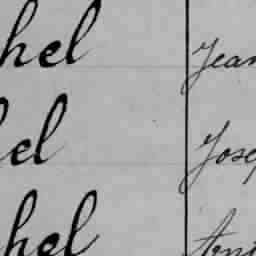 hel Jean
el Jose
hel